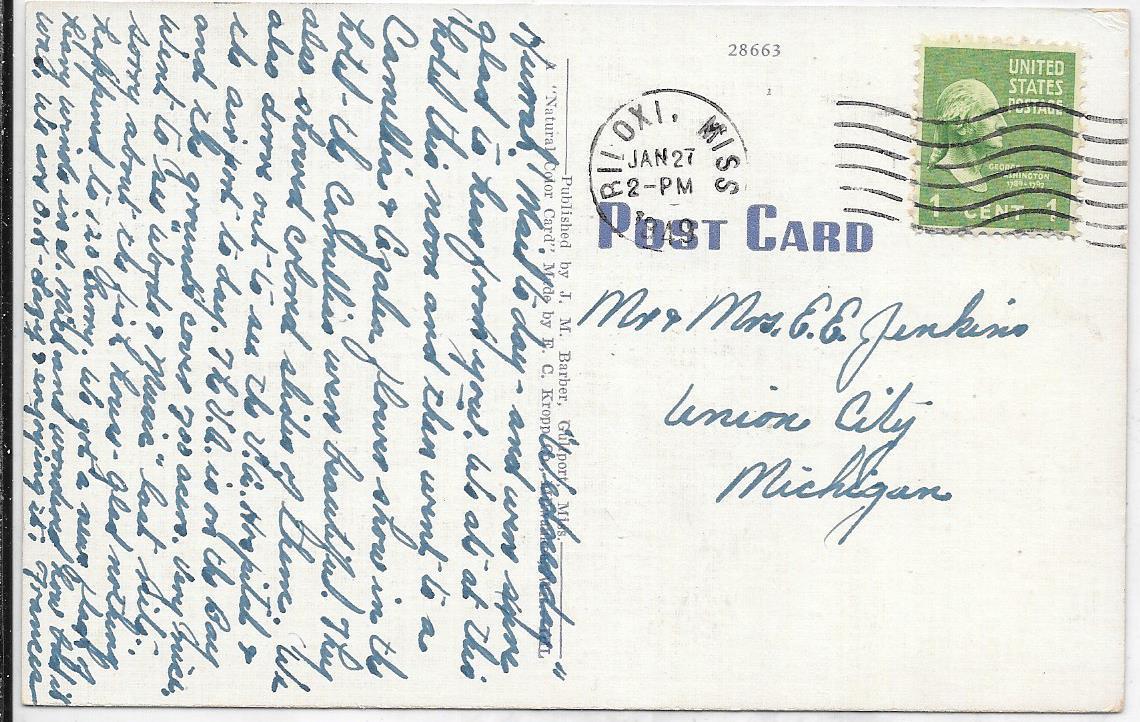 28663
UNITED
STATES
POSTAGE
GEORGE
WASHINGTON
1789-1797
1 CENT 1
BILOXI, MISS
JAN 27
2-PM
1949
POST CARD
Mr & Mrs. E. E. Jenkins
Union City
Michigan
Published by J. M. Barber, Gulfport, Miss.
A "Natural Color Card", Made by E. C. Kropp
"Wednesday"
Hurrah, Mail to-day - and were so
glad to hear from you. We ate at this
hotel this noon and then went to a
Camellia & Azalea flower show in the
hotel - the Camellias were beautiful. They
also showed colored slides of them. We
also drove out to see the V.A. Hospital &
the airport to-day. The V.A. is on the Bay
and the grounds cover 700 acres. Very nice.
Went to see "Words & Music" last nite.
Sorry about the fire but glad nothing
happened to
heavy winds in S. Mich and wondered how bad it
was. We are O.K. Lazy & enjoying it. Frances